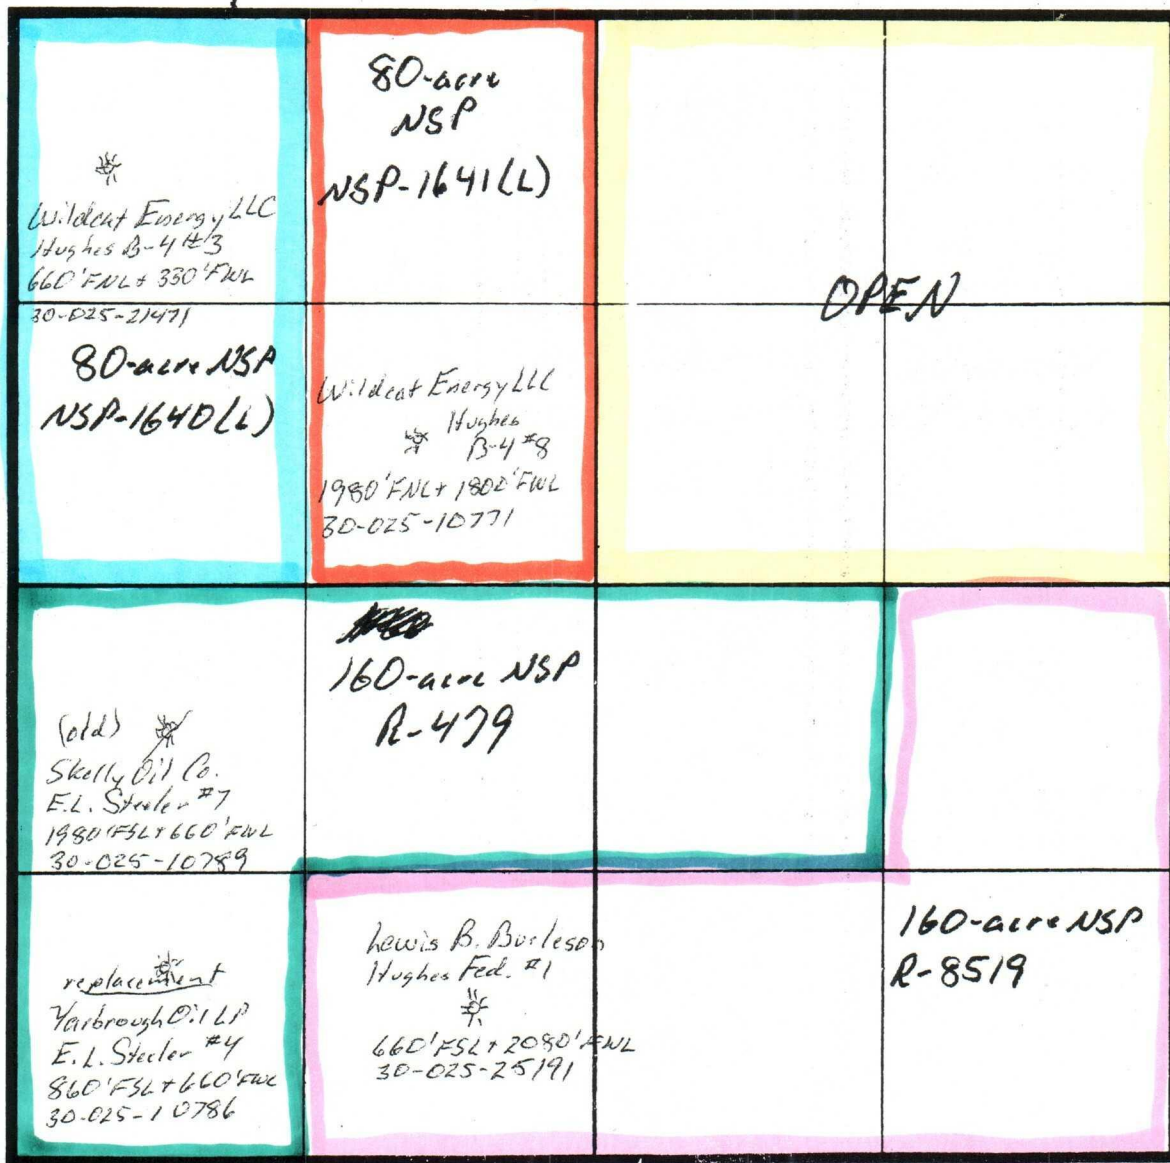 80-acre
NSP
NSP-1641(L)
Wildcat Energy LLC
Hughes B-4 #3
660'FNL + 330'FWL
30-025-21471
80-acre NSP
NSP-1640(L)
Wildcat Energy LLC
Hughes
B-4 #8
1980'FNL + 1800'FWL
30-025-10771
OPEN
160-acre NSP
R-479
(old)
Skelly Oil Co.
E.L. Steeler #7
1980'FSL + 660'FWL
30-025-10789
replacement
Yarbrough Oil LP
E.L. Steeler #4
860'FSL + 660'FWL
30-025-10786
Lewis B. Burleson
Hughes Fed. #1
660'FSL + 2080'FWL
30-025-25191
160-acre NSP
R-8519